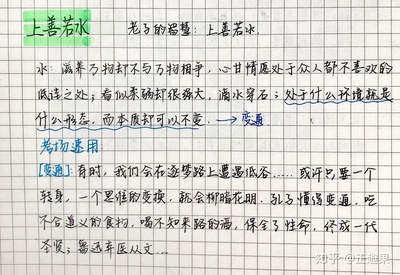 上善若水
老子的智慧：上善若水.
水：滋养万物却不与万物相争，心甘情愿处于众人都不喜欢的
低洼之处；看似柔弱却很强大，滴水穿石；处于什么环境就是
什么形态，而本质却可以不变. →变通
考场速用：
[变通]：有时，我们会在逐梦路上遭遇低谷……或许只要一个
转身，一个思维的变换，就会柳暗花明，孔子懂得变通，吃
不合道义的食物，喝不知来路的酒，保全了性命，终成一代
圣贤；鲁迅弃医从文…
知乎 @正趣果